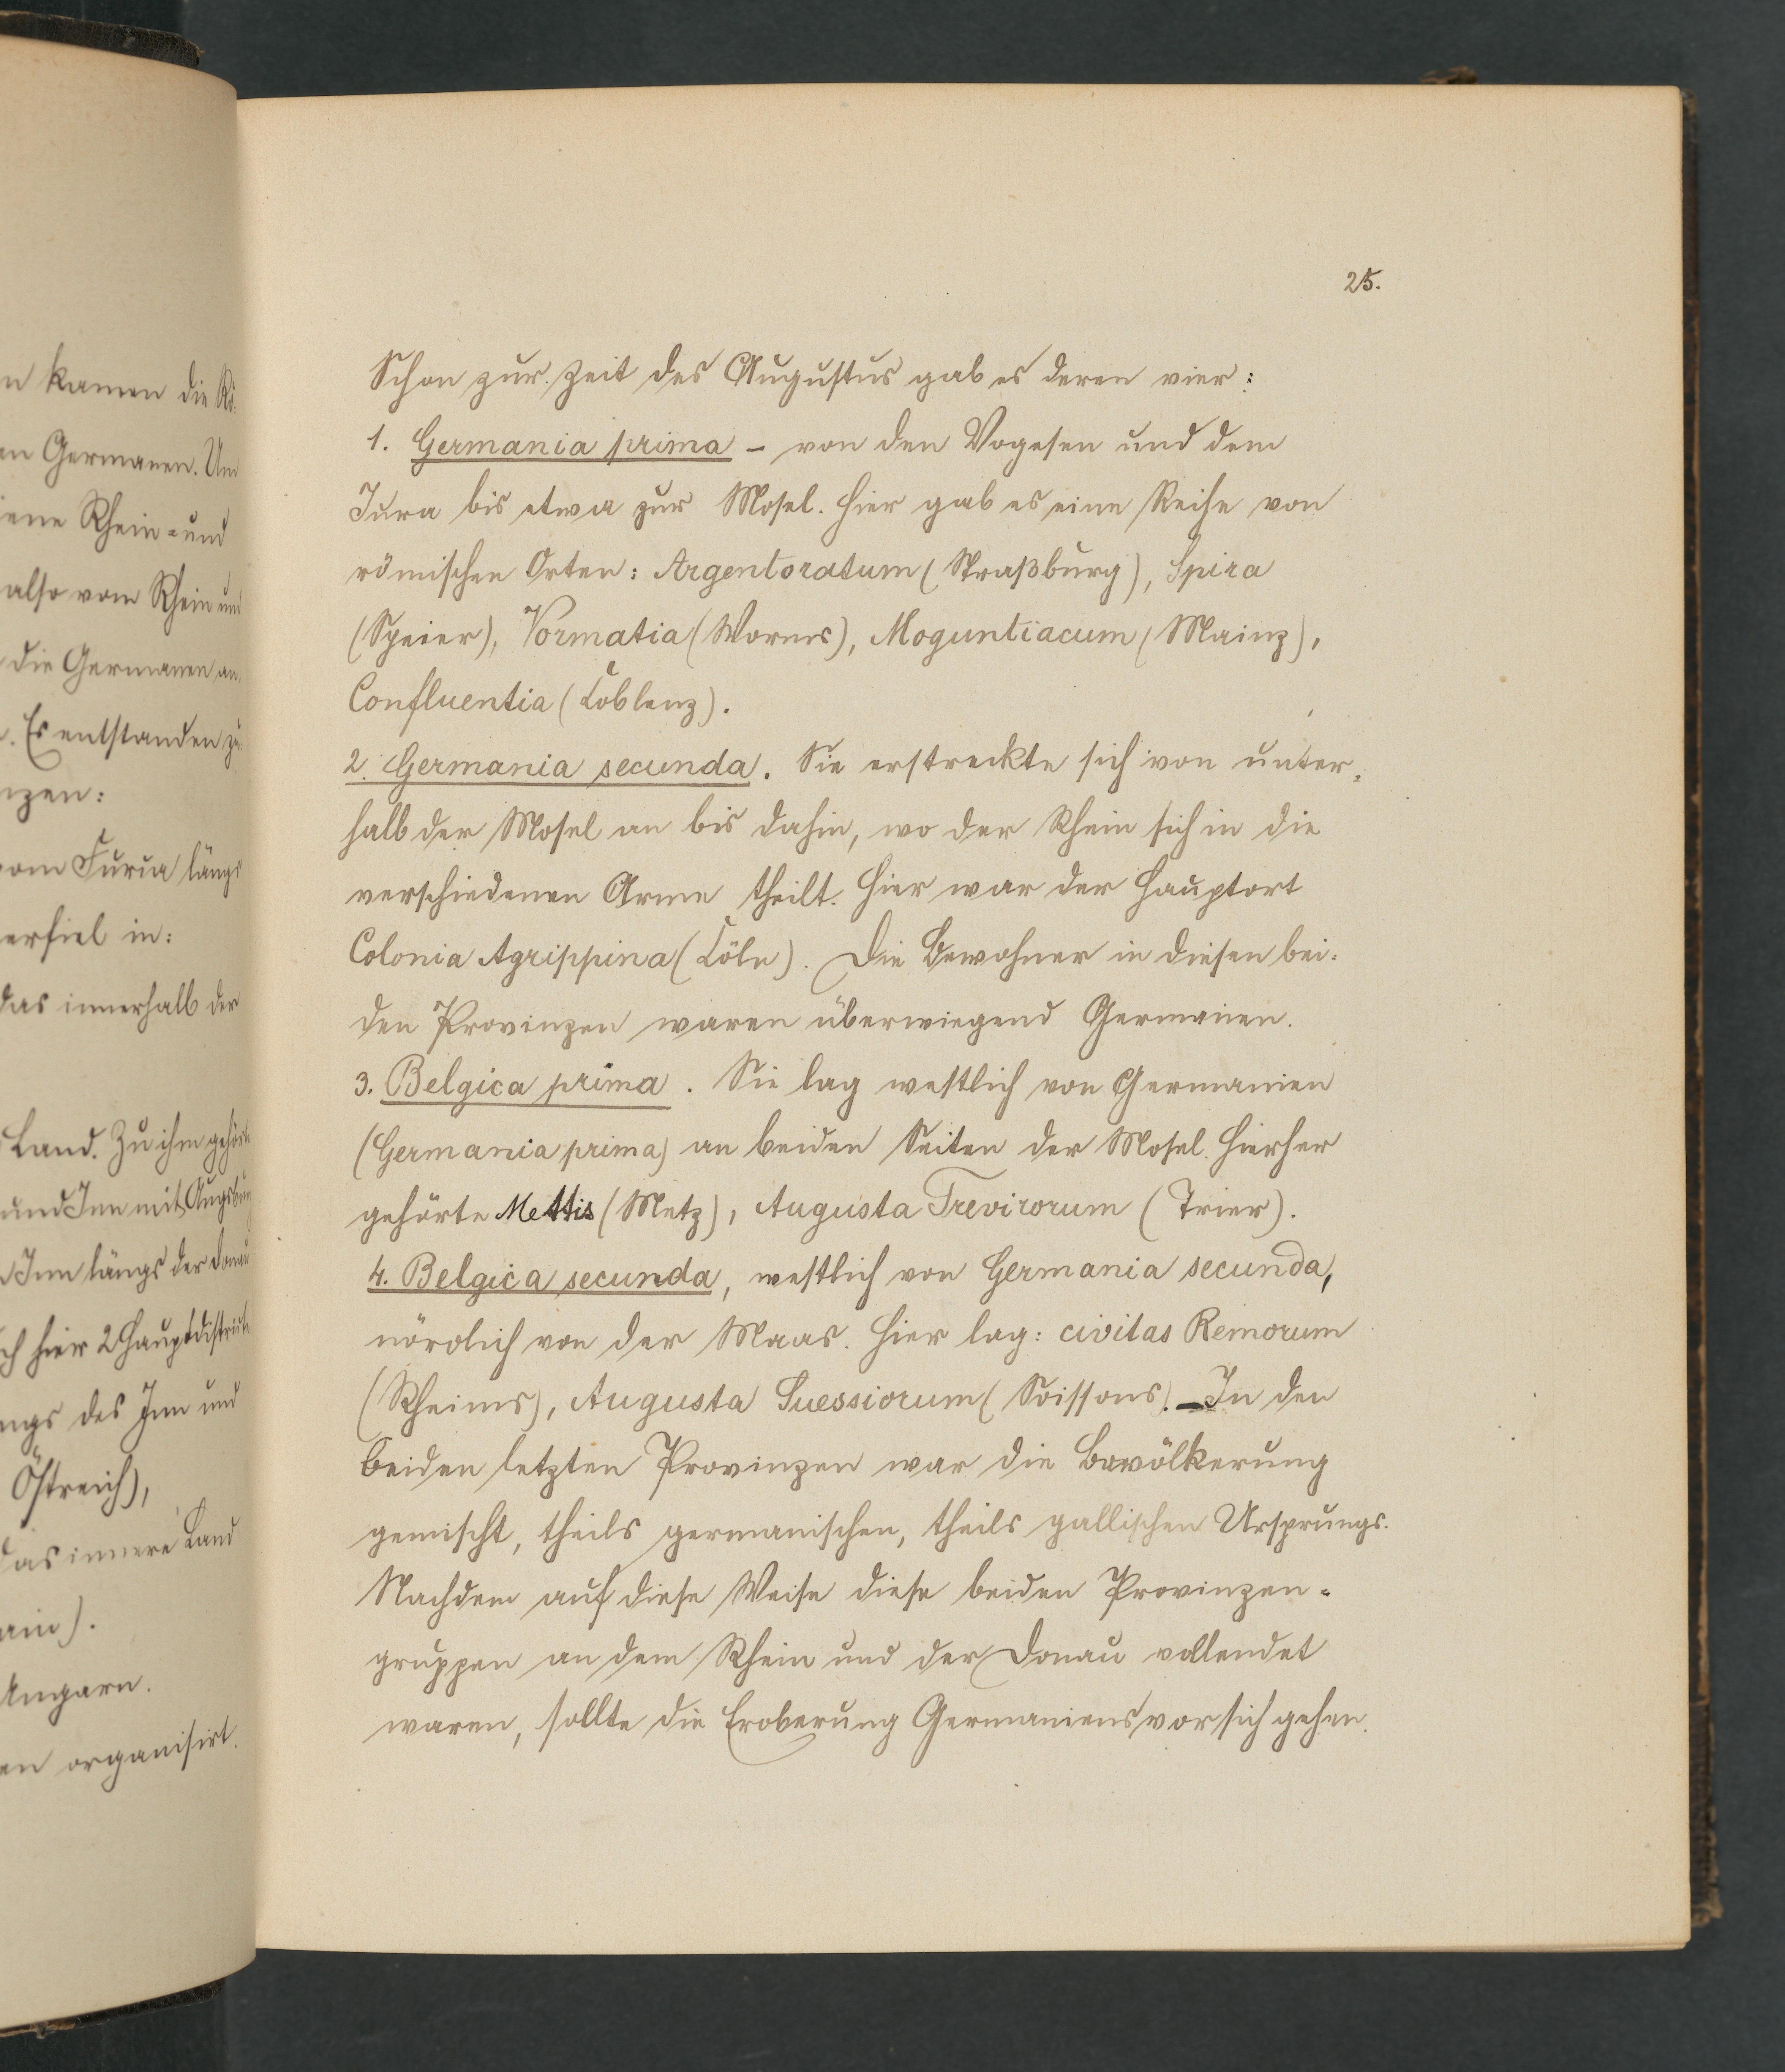 n kamen die Rö-
en Germanen. Um
iene Rhein- und
also vom Rhein und
die Germanen an-
. Es entstanden zu-
nzen:
vom Furia längs
erfiel in:
das innerhalb der
Land. Zu ihm gehörte
und Inn mit Augsburg
Inn längs der Donau
ch hier 2 Hauptdistricte
ngs des Inn und
Östreich),
das innere Land
ain).
Ungarn.
en organisirt.
25.
Schon zur Zeit des Augustus gab es deren vier:
1. Germania prima – von den Vogesen und dem
Jura bis etwa zur Mosel. Hier gab es eine Reihe von
römischen Orten: Argentoratum (Straßburg), Spira
(Speier), Vormatia (Worms), Moguntiacum (Mainz),
Confluentia (Coblenz).
2. Germania secunda. Sie erstreckte sich von unter-
halb der Mosel an bis dahin, wo der Rhein sich in die
verschiedenen Arme theilt. Hier war der Hauptort
Colonia Agrippina (Cöln). Die Bewohner in diesen bei-
den Provinzen waren überwiegend Germanen.
3. Belgica prima. Sie lag westlich von Germanien
(Germania prima) an beiden Seiten der Mosel. Hierher
gehörte Mettis (Metz), Augusta Trevirorum (Trier).
4. Belgica secunda, westlich von Germania secunda,
nördlich von der Maas. Hier lag: civitas Remorum
(Rheims), Augusta Suessiorum (Soissons). – In den
beiden letzten Provinzen war die Bevölkerung
gemischt, theils germanischen, theils gallischen Ursprungs.
Nachdem auf diese Weise diese beiden Provinzen-
gruppen an dem Rhein und der Donau vollendet
waren, sollte die Eroberung Germaniens vor sich gehen.